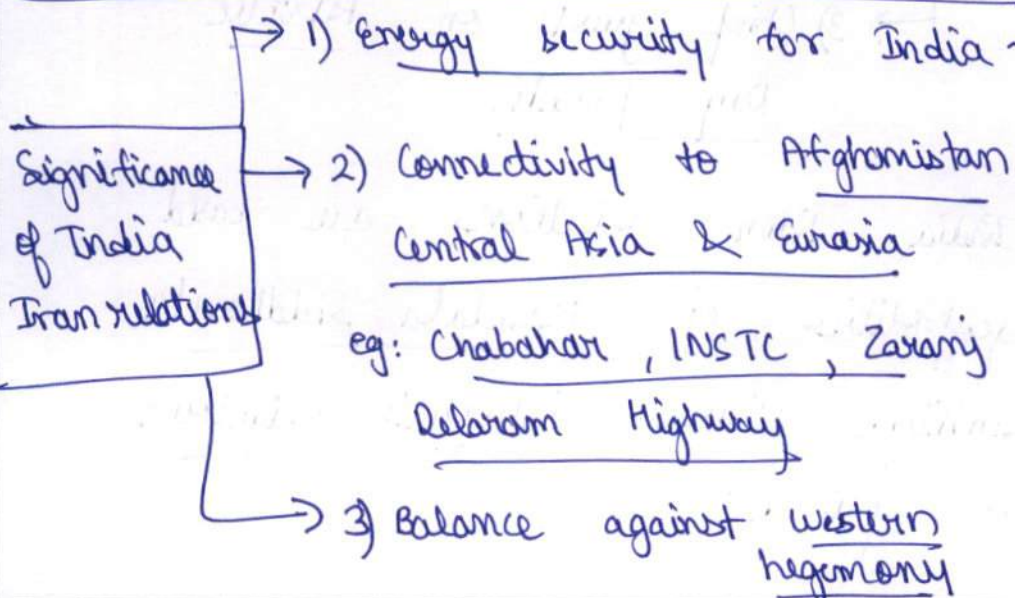 Significance
of India
Iran relations
1) Energy security for India
2) Connectivity to Afghanistan
Central Asia & Eurasia
eg: Chabahar, INSTC, Zaranj
Delaram Highway
3) Balance against western
hegemony